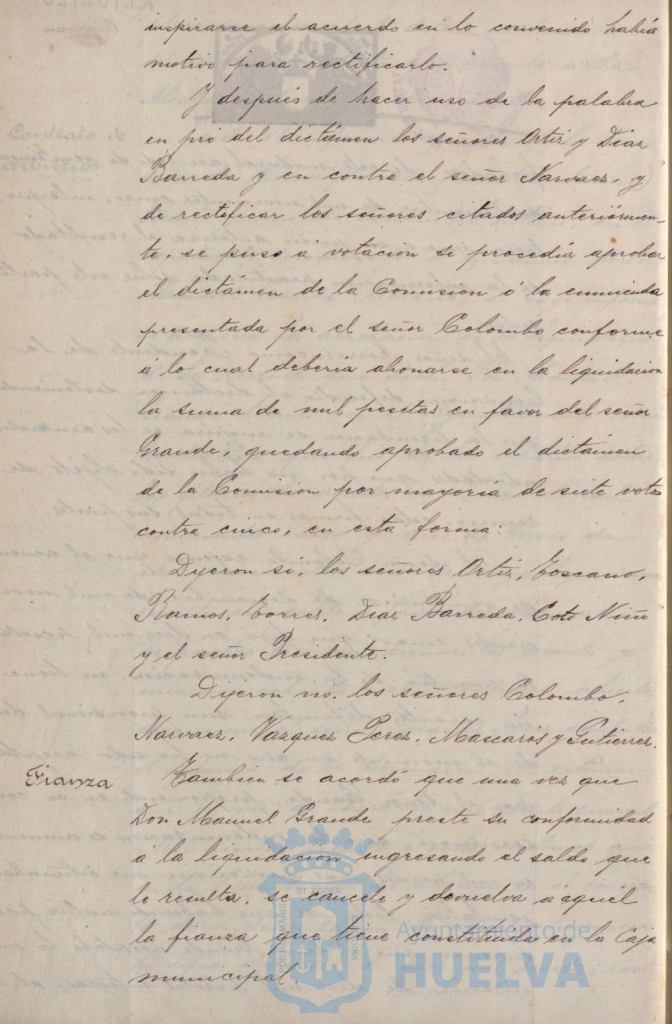 inspirarse el acuerdo en lo convenido había
motivo para rectificarlo.
Y después de hacer uso de la palabra
en pró del dictámen los señores Ortiz y Diaz
Barreda y en contra el señor Narvaez, y
de rectificar los señores citados anteriormen-
te, se puso á votación si procedía aprobar
el dictámen de la Comision ó la enmienda
presentada por el señor Colombo conforme
á lo cual debería abonarse en la liquidacion
la suma de mil pesetas en favor del señor
Grande, quedando aprobado el dictámen
de la Comision por mayoría de siete votos
contra cinco, en esta forma:
Dijeron si, los señores Ortiz, Toscano,
Ramos, Torres, Diaz Barreda, Coto Niño
y el señor Presidente.
Dijeron no, los señores Colombo,
Narvaez, Vazquez Perez, Mascarós y Gutierrez.
Fianza
Tambien se acordó que una vez que
Don Manuel Grande preste su conformidad
á la liquidación ingresando el saldo que
le resulta, se cancele y devuelva á aquél
la fianza que tiene constituida en la Caja
municipal.
Ayuntamiento de
HUELVA